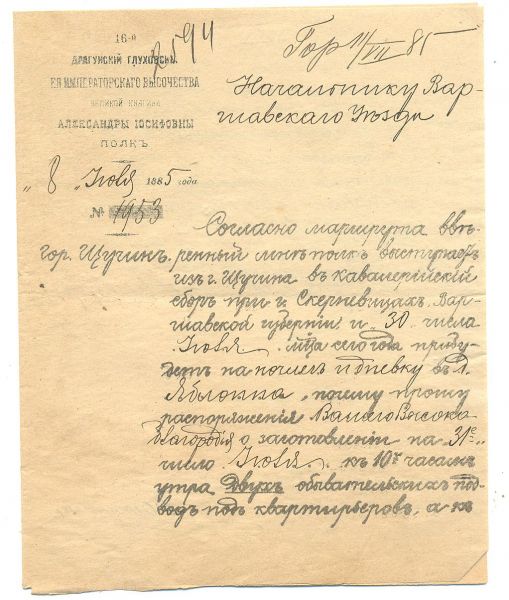 16-й
№ 594
ДРАГУНСКІЙ ГЛУХОВСКІЙ
ЕЯ ИМПЕРАТОРСКАГО ВЫСОЧЕСТВА
ВЕЛИКОЙ КНЯГИНИ
АЛЕКСАНДРЫ ІОСИФОВНЫ
ПОЛКЪ
11/VII 85
Начальнику Вар-
шавскаго Уѣзда
„8 Іюля 1885 года
№ 1953
гор. Щучинъ.
Согласно маршрута ввѣ-
ренный мнѣ полкъ выступаетъ
изъ г. Щучина въ кавалерійскій
сборъ при г. Скерневицахъ, Вар-
шавской губерніи и „30 числа
Іюля м-ца сего года прибу-
детъ на ночлегъ и дневку въ д.
Яблонна, почему прошу
распоряженія Вашего Высоко-
благородія о заготовленіи на 31е
число Іюля къ 10т часамъ
утра двухъ обывательскихъ под-
водъ подъ квартирьеровъ, а къ